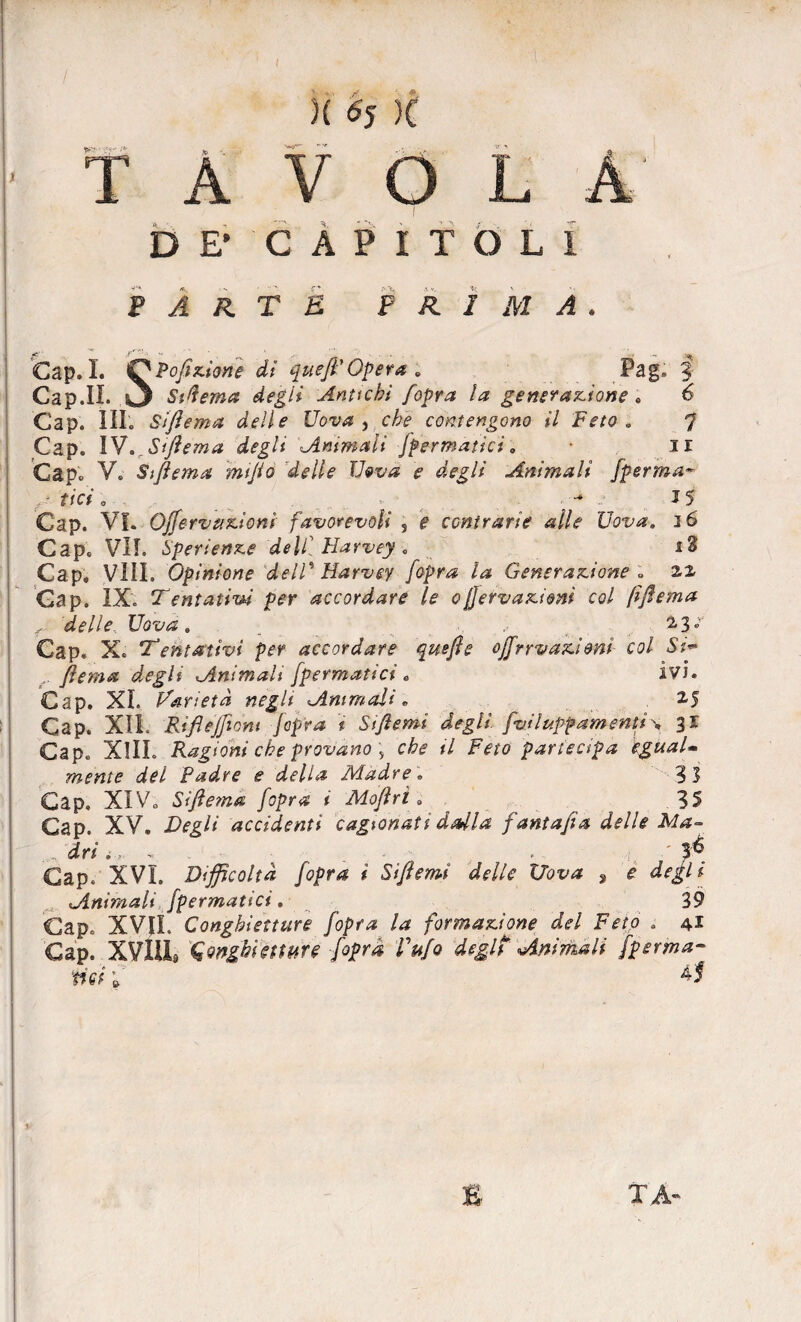 )( 65 )(
TAVOLA
DE' CAPITOLI
PARTE PRIMA.
Cap. I. SPoſizione di queſt' Opera. Pag. 3
Cap. II. Siſtema degli Antichi ſopra la generazione. 6
Cap. III. Siſtema delle Uova, che contengono il Feto. 7
Cap. IV. Siſtema degli Animali ſpermatici. 11
Cap. V. Siſtema miſto delle Uova e degli Animali ſperma-
tici. 15
Cap. VI. Oſſervazioni favorevoli, e contrarie alle Uova. 16
Cap. VII. Sperienze dell' Harvey. 18
Cap. VIII. Opinione dell' Harvey ſopra la Generazione. 22
Cap. IX. Tentativi per accordare le oſſervazioni col ſiſtema
delle Uova. 23.
Cap. X. Tentativi per accordare queſte oſſrrvazioni col Si-
ſtema degli Animali ſpermatici. ivi.
Cap. XI. Varietà negli Animali. 25
Cap. XII. Rifleſſioni ſopra i Siſtemi degli ſviluppamenti. 31
Cap. XIII. Ragioni che provano, che il Feto partecipa egual-
mente del Padre e della Madre. 33
Cap. XIV. Siſtema ſopra i Moſtri. 35
Cap. XV. Degli accidenti cagionati dalla fantaſia delle Ma-
dri. 36
Cap. XVI. Difficoltà ſopra i Siſtemi delle Uova, e degli
Animali ſpermatici. 39
Cap. XVII. Conghietture ſopra la formazione del Feto. 41
Cap. XVIII. Conghietture ſopra l'uſo degli Animali ſperma-
tici. 45
E TA-